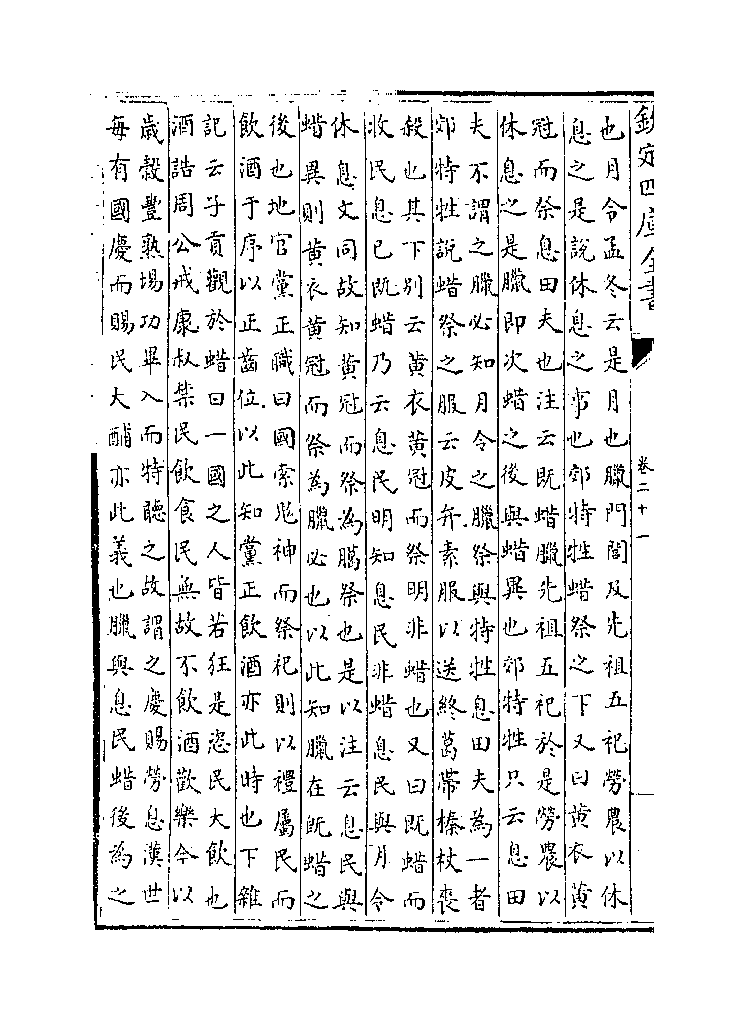 欽定四庫全書
卷二十一
也月令孟冬云是月也臘門閭及先祖五祀勞農以休
息之是說休息之事也郊特牲蜡祭之下又曰黄衣黄
冠而祭息田夫也注云既蜡臘先祖五祀於是勞農以
休息之是臘即次蜡之後與蜡異也郊特牲只云息田
夫不謂之臘必知月令之臘祭與特牲息田夫為一者
郊特牲說蜡祭之服云皮弁素服以送終葛帶榛杖喪
殺也其下别云黄衣黄冠而祭明非蜡也又曰既蜡而
收民息已既蜡乃云息民明知息民非蜡息民與月令
休息文同故知黄冠而祭為臈祭也是以注云息民與
蜡異則黄衣黄冠而祭為臘必也以此知臘在既蜡之
後也地官黨正職曰國索鬼神而祭祀則以禮屬民而
飲酒于序以正齒位以此知黨正飲酒亦此時也下雜
記云子貢觀於蜡曰一國之人皆若狂是恣民大飲也
酒誥周公戒康叔禁民飲食民無故不飲酒歡樂今以
歲穀豐熟場功畢入而特聽之故謂之慶賜勞息漢世
每有國慶而賜民大酺亦此義也臘與息民蜡後為之